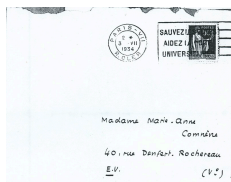 PARIS-VII
2 *
3 - VII
1934
R. CLER
SAUVEZ
AIDEZ LA
UNIVERS
Madame Marie-Anne
Comnène
40, rue Denfert-Rochereau
E.V. (Ve)